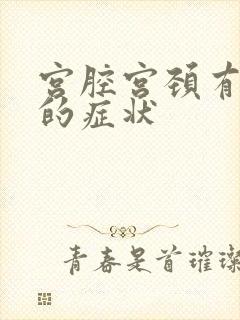 宫腔宫颈有
的症状
青春是首璀璨